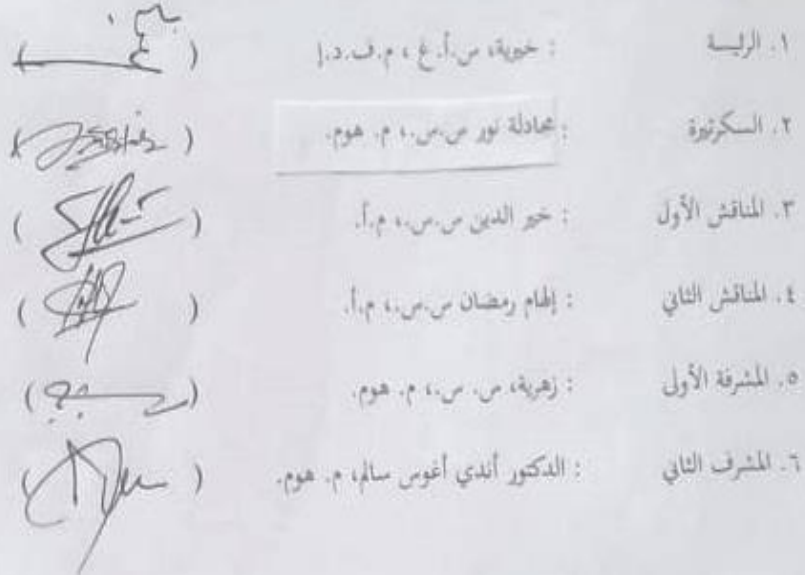 ١. الرئيسة : خيرية، س.أ.غ ، م.ف.د.إ ( )
٢. السكرتيرة : مجادلة نور س.س.، م. هوم. ( )
٣. المناقش الأول : خير الدين س.س.، م.أ. ( )
٤. المناقش الثاني : إلهام رمضان س.س.، م.أ. ( )
٥. المشرفة الأولى : زهرية، س. س.، م. هوم. ( )
٦. المشرف الثاني : الدكتور أندي أغوس سالم، م. هوم. ( )